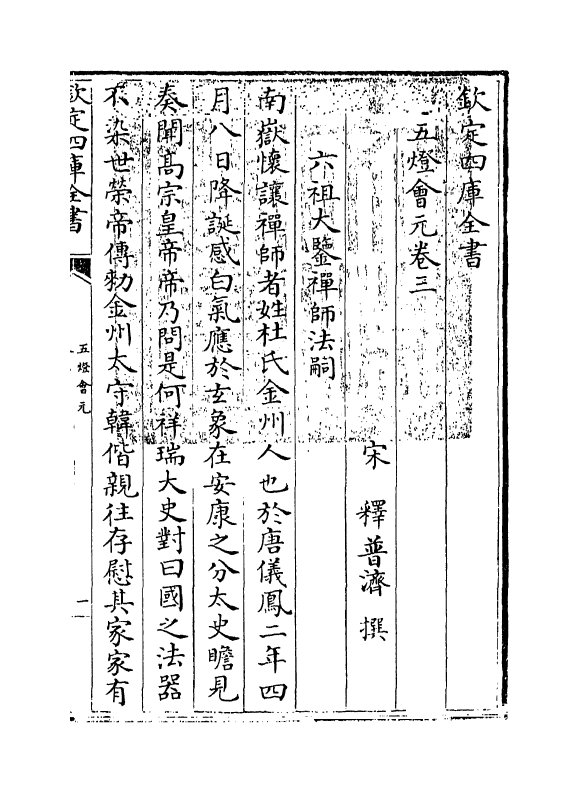 欽定四庫全書
五燈會元卷三
宋 釋普濟 撰
六祖大鑒禪師法嗣
南嶽懷讓禪師者姓杜氏金州人也於唐儀鳳二年四
月八日降誕感白氣應於玄象在安康之分太史瞻見
奏聞高宗皇帝帝乃問是何祥瑞大史對曰國之法器
不染世榮帝傳勅金州太守韓偕親往存慰其家家有
欽定四庫全書
五燈會元
一